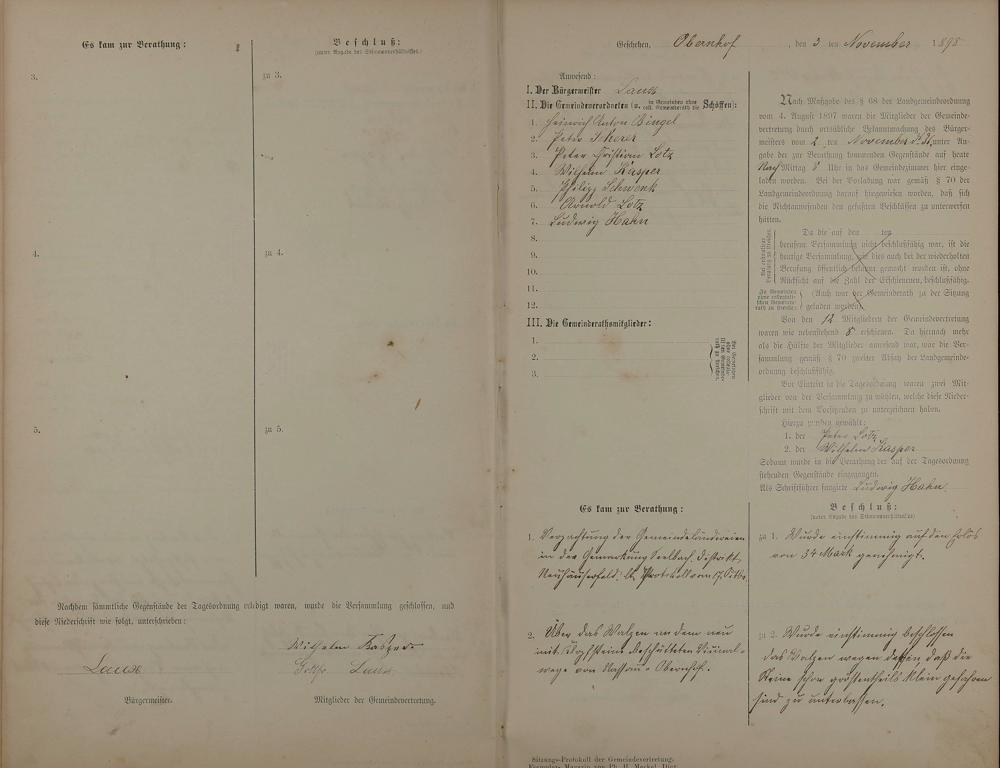 Es kam zur Berathung:
Beschluß:
(unter Angabe des Stimmenverhältnisses.)
3.
zu 3.
4.
zu 4.
5.
zu 5.
Nachdem sämmtliche Gegenstände der Tagesordnung erledigt waren, wurde die Versammlung geschlossen, und
diese Niederschrift wie folgt, unterschrieben:
Wilhelm Kasper
Bürgermeister.
Mitglieder der Gemeindevertretung.
Geschehen, Obernhof, den 3 ten November 1898
Anwesend:
I. Der Bürgermeister
II. Die Gemeindeverordneten (u. in Gemeinden ohne coll. Gemeinderath die Schöffen):
1. Heinrich Anton Bingel
2. Peter Scherer
3. Peter Christian Lotz
4. Wilhelm Kasper
5. Philipp Schwenk
6. Arnold Lotz
7. Ludwig Hahn
8.
9.
10.
11.
12.
III. Die Gemeinderathsmitglieder:
1.
2.
3.
Nach Maßgabe des § 68 der Landgemeindeordnung
vom 4. August 1897 waren die Mitglieder der Gemeinde-
vertretung durch ortsübliche Bekanntmachung des Bürger-
meisters vom 2 ten November d. Js. unter An-
gabe der zur Berathung kommenden Gegenstände auf heute
Nach Mittag 8 Uhr in das Gemeindezimmer hier einge-
laden worden. Bei der Vorladung war gemäß § 70 der
Landgemeindeordnung darauf hingewiesen worden, daß sich
die Nichtanwesenden den gefaßten Beschlüssen zu unterwerfen
hätten.
Da die auf den ten
berufene Versammlung nicht beschlußfähig war, ist die
heutige Versammlung, und dies auch bei der wiederholten
Berufung öffentlich bekannt gemacht worden ist, ohne
Rücksicht auf die Zahl der Erschienenen, beschlußfähig.
(Auch war der Gemeinderath zu der Sitzung
geladen worden.)
Von den 12 Mitgliedern der Gemeindevertretung
waren wie nebenstehend 8 erschienen. Da hiernach mehr
als die Hälfte der Mitglieder anwesend war, war die Ver-
sammlung gemäß § 70 zweiter Absatz der Landgemeinde-
ordnung beschlußfähig.
Vor Eintritt in die Tagesordnung waren zwei Mit-
glieder von der Versammlung zu wählen, welche diese Nieder-
schrift mit dem Vorsitzenden zu unterzeichnen haben.
Hierzu wurden gewählt:
1. der Peter Lotz
2. der Wilhelm Kasper
Sodann wurde in die Berathung der auf der Tagesordnung
stehenden Gegenstände eingegangen.
Als Schriftführer fungirte Ludwig Hahn.
Es kam zur Berathung:
Beschluß:
(unter Angabe des Stimmenverhältnisses)
1. Verpachtung der Gemeindeländereien
in der Gemarkung Seelbach, Distrikt
Neuhäuserfeld. Protokoll vom 17. Oktbr.
zu 1. Wurde einstimmig auf den Erlös
von 34 Mark genehmigt.
2. Über das Walzen an dem neu
mit beschütteten Vicinal-
wege von Nassau - Obernhof.
zu 2. Wurde einstimmig beschlossen
das Walzen wegen dessen, daß die
Steine schon größtentheils klein gefahren
sind zu unterlassen.
Sitzungs-Protokoll der Gemeindevertretung.